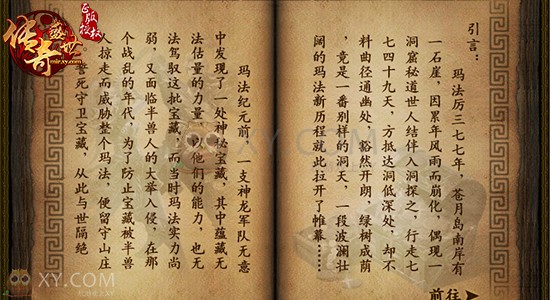 传奇盛世
mir.xy.com
正版
授权
引言：
玛法厉三七七年，苍月岛南岸有
一石崖，因累年风雨而崩化，偶现一
洞窟秘道世人结伴入洞探之，行走七
七四十九天，方抵达洞低深处，却不
料曲径通幽处，豁然开朗，绿树成荫
，竟是一番别样的洞天，一段波澜壮
阔的玛法新历程就此拉开了帷幕……
前往
玛法纪元前，一支神龙军队无意
中发现了一处神秘宝藏，其中蕴藏无
法估量的力量，以他们的能力，也无
法驾驭这批宝藏，而当时玛法实力尚
弱，又面临半兽人的大举入侵，在那
个战乱的年代，为了防止宝藏被半兽
人掠走而威胁整个玛法，便留守山庄
誓死守卫宝藏，从此与世隔绝
XY.COM
XY.COM